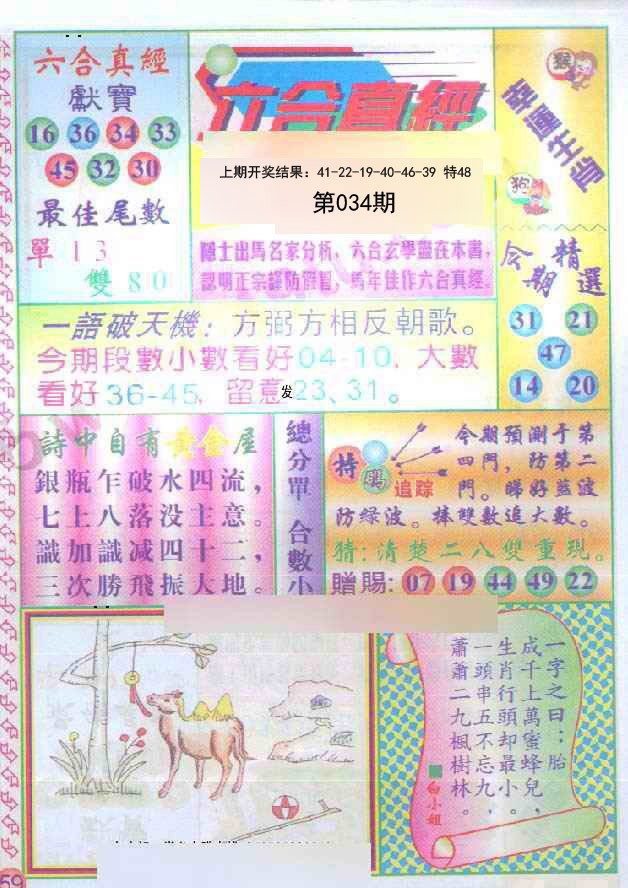 六合真經
獻寶
16 36 34 33
45 32 30
最佳尾數
單 1 3
雙 8 0
六合真經
上期开奖结果：41-22-19-40-46-39 特48
第034期
隱士出馬名家分析，六合玄學盡在本書，
認明正宗謹防假冒，馬年佳作六合真經。
猴
幸運生肖
狗
今期精選
31 21
47
14 20
一語破天機：方弼方相反朝歌。
今期段數小數看好04-10，大數
看好36-45，留意23、31。
发
詩中自有黃金屋
銀瓶乍破水四流，
七上八落没主意。
識加識减四十二，
三次勝飛振大地。
總分單 合數小
特碼追踪
今期預測于第
四門，防第二
門。睇好藍波
防緑波。捧雙數追大數。
猜：清楚二八雙重現。
贈賜：07 19 44 49 22
一字之曰：胎
成千上萬蜜蜂兒，
生肖行頭却最小。
一頭串五不忘九，
蕭蕭二九楓樹林。
白小姐
59